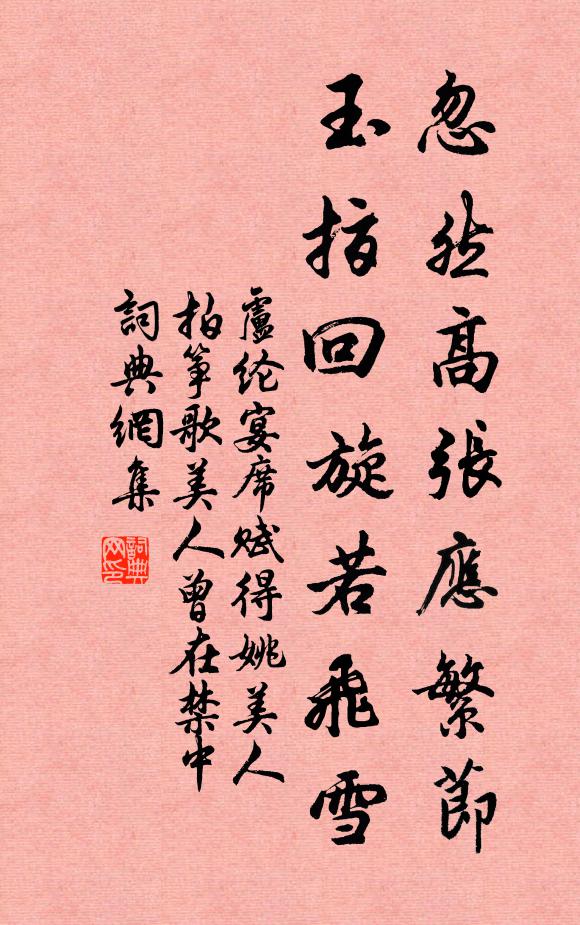 忽然高張應繁節
玉指回旋若飛雪
盧綸宴席賦得姚美人
拍箏歌美人曾在禁中
詞典網集
詞典
网印